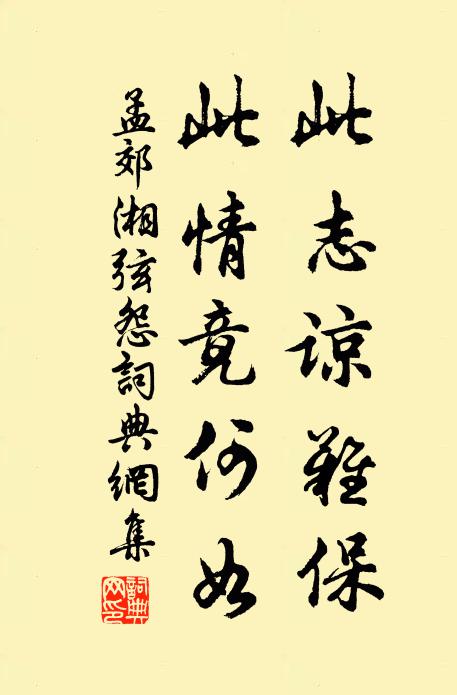 此志諒難保
此情竟何如
孟郊湘弦怨詞典網集
詞典
网印